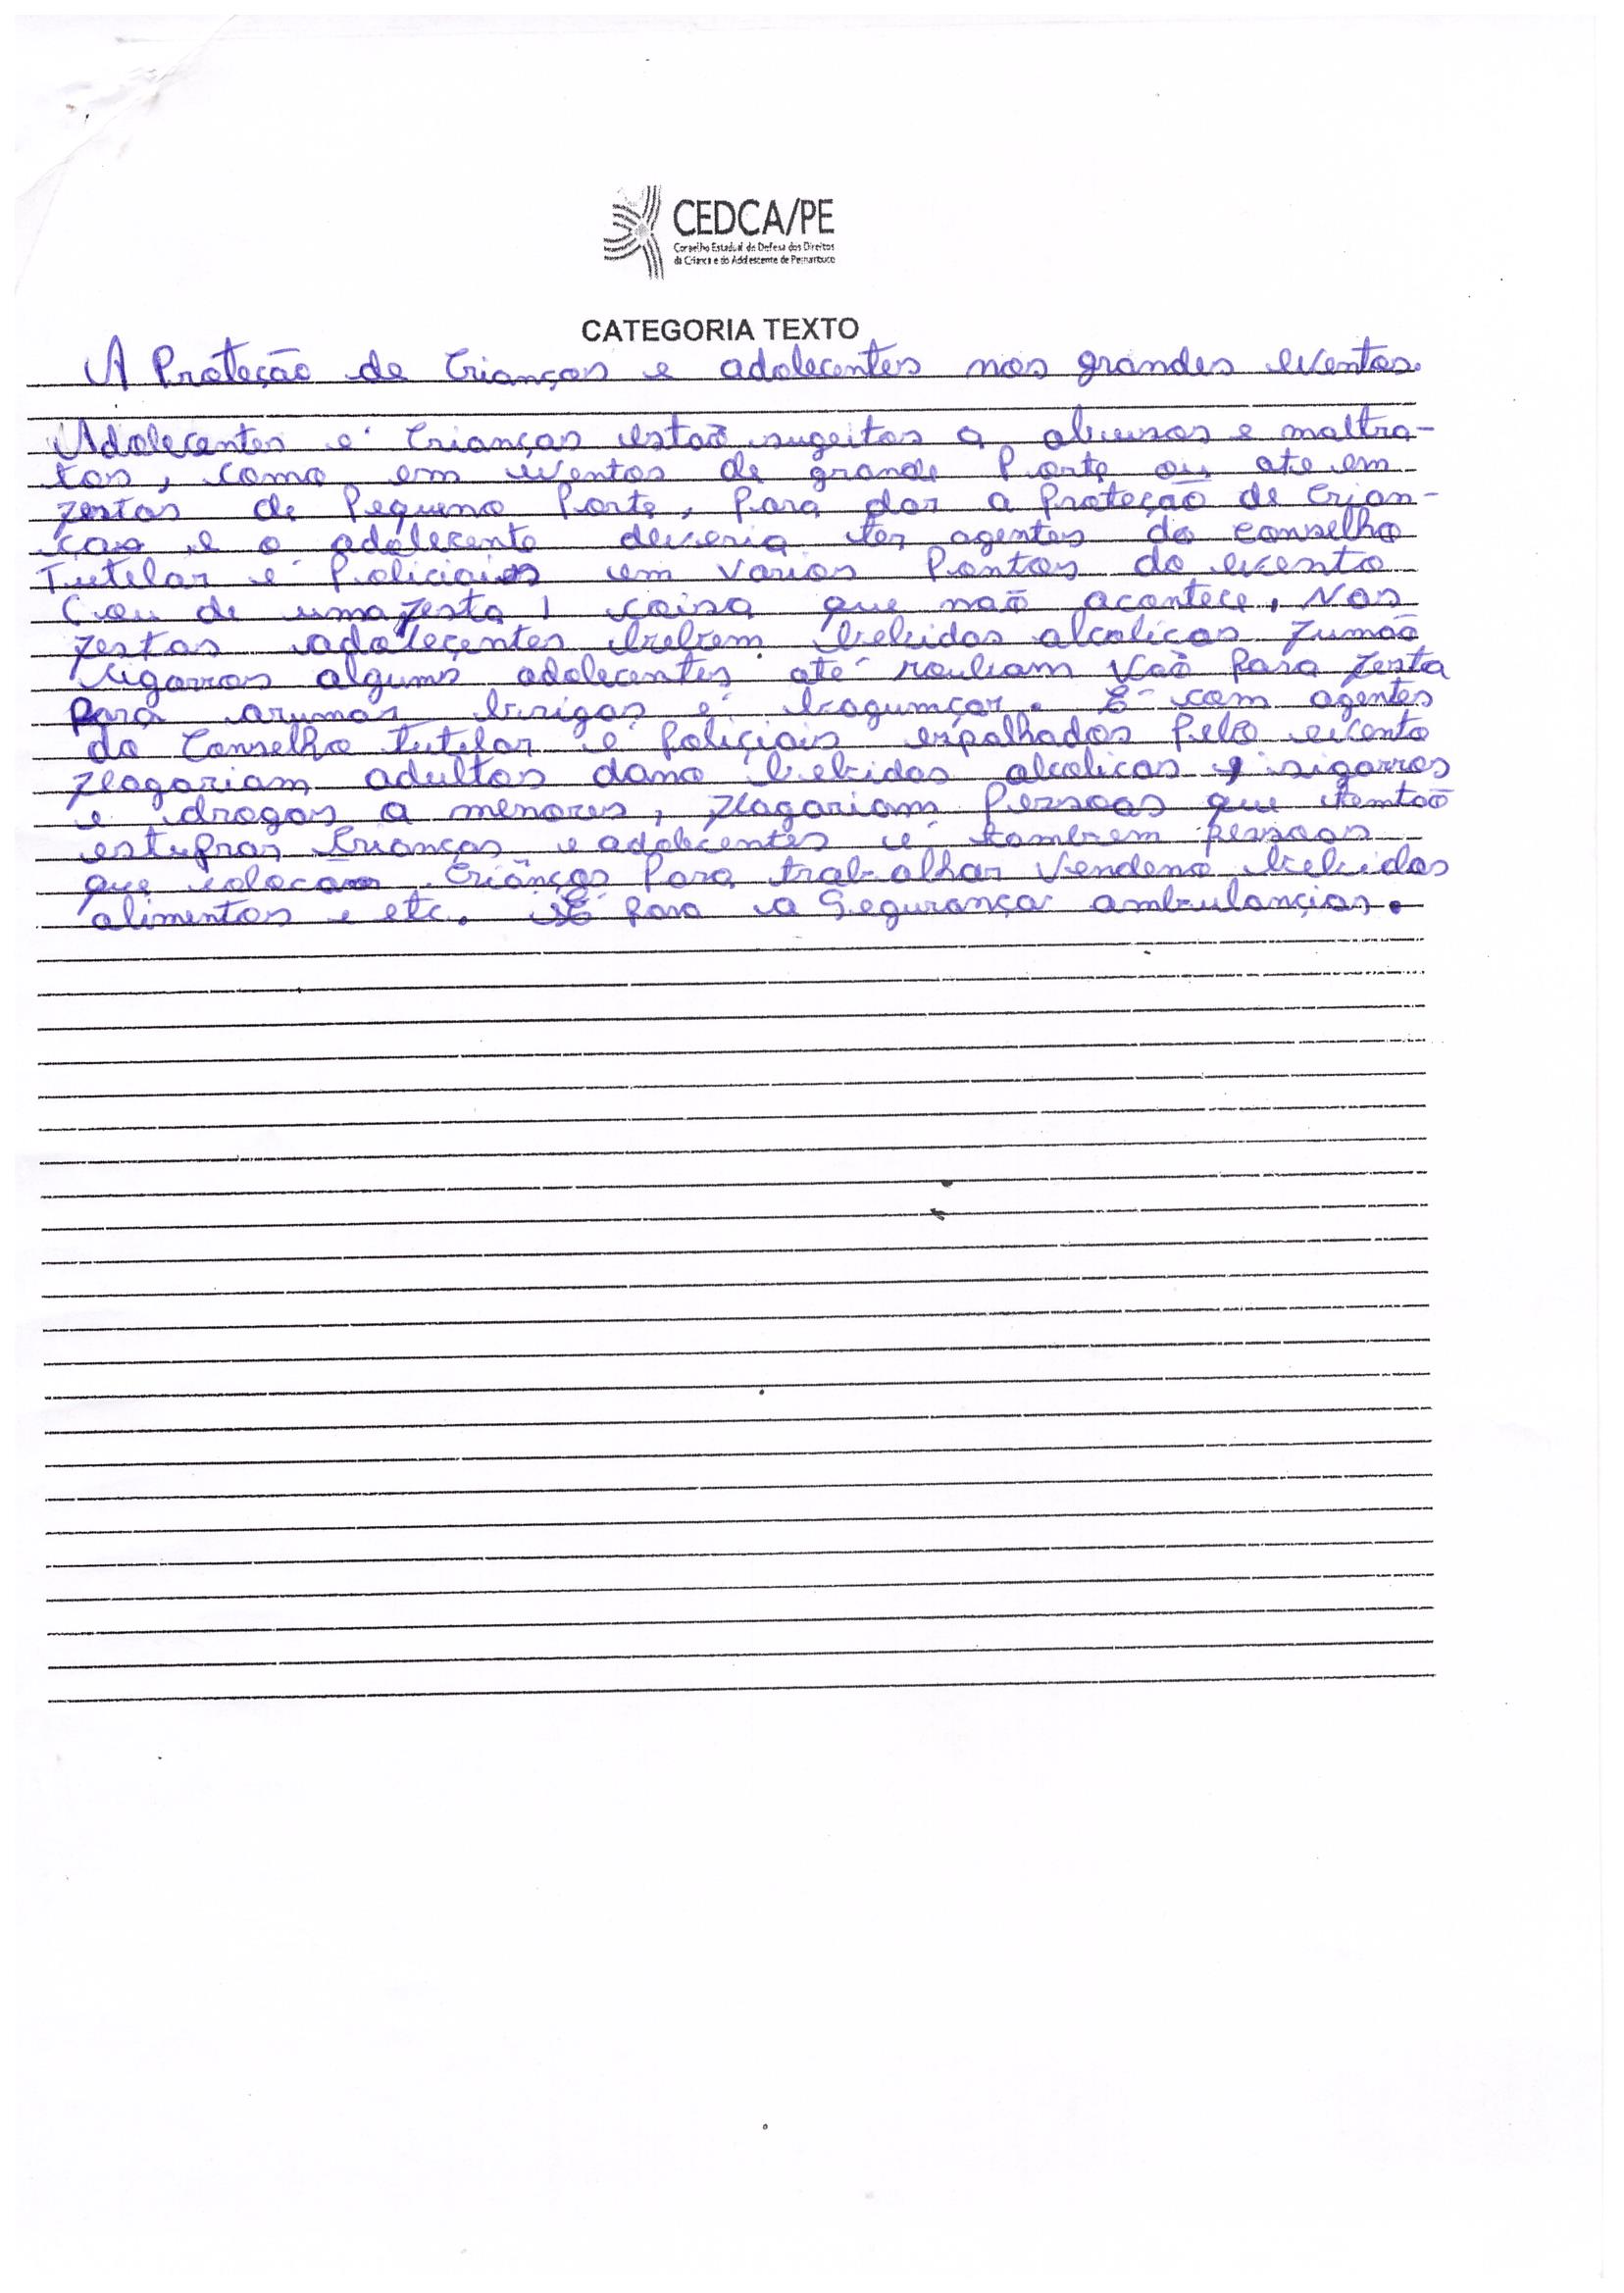 CEDCA/PE
Conselho Estadual de Defesa dos Direitos
da Criança e do Adolescente de Pernambuco
CATEGORIA TEXTO
A Proteção de Crianças e adolecentes nos grandes eventos.
Adolecentes e Crianças estaõ sugeitos a abusos e maltra-
tos, como em eventos de grande Porte ou ate em
festas de Pequeno Porte, Para dar a Proteção de Crian-
ças e o adolecente deveria ter agentes do conselho
Tutelar e Policiais em varios Pontos do evento
(ou de uma festa) coisa que naõ acontece, Nos
festas adoleçentes bebem bebidas alcolicas fumaõ
sigarros alguns adolecentes até roubam Vaõ Para festa
Para arumar brigas e bagumçar. E com agentes
do Conselho tutelar e Poliçiais espalhados Pelo evento
flagariam adultos dano bebidas alcolicas, sigarros
e drogas a menores, flagariam Pessoas que temtaõ
estuprar Crianças e adolecentes e tambem pessoas
que colocam Crianças Para trabalhar Vendeno bebidas
alimentos e etc. E Para a Segurança ambulançias.